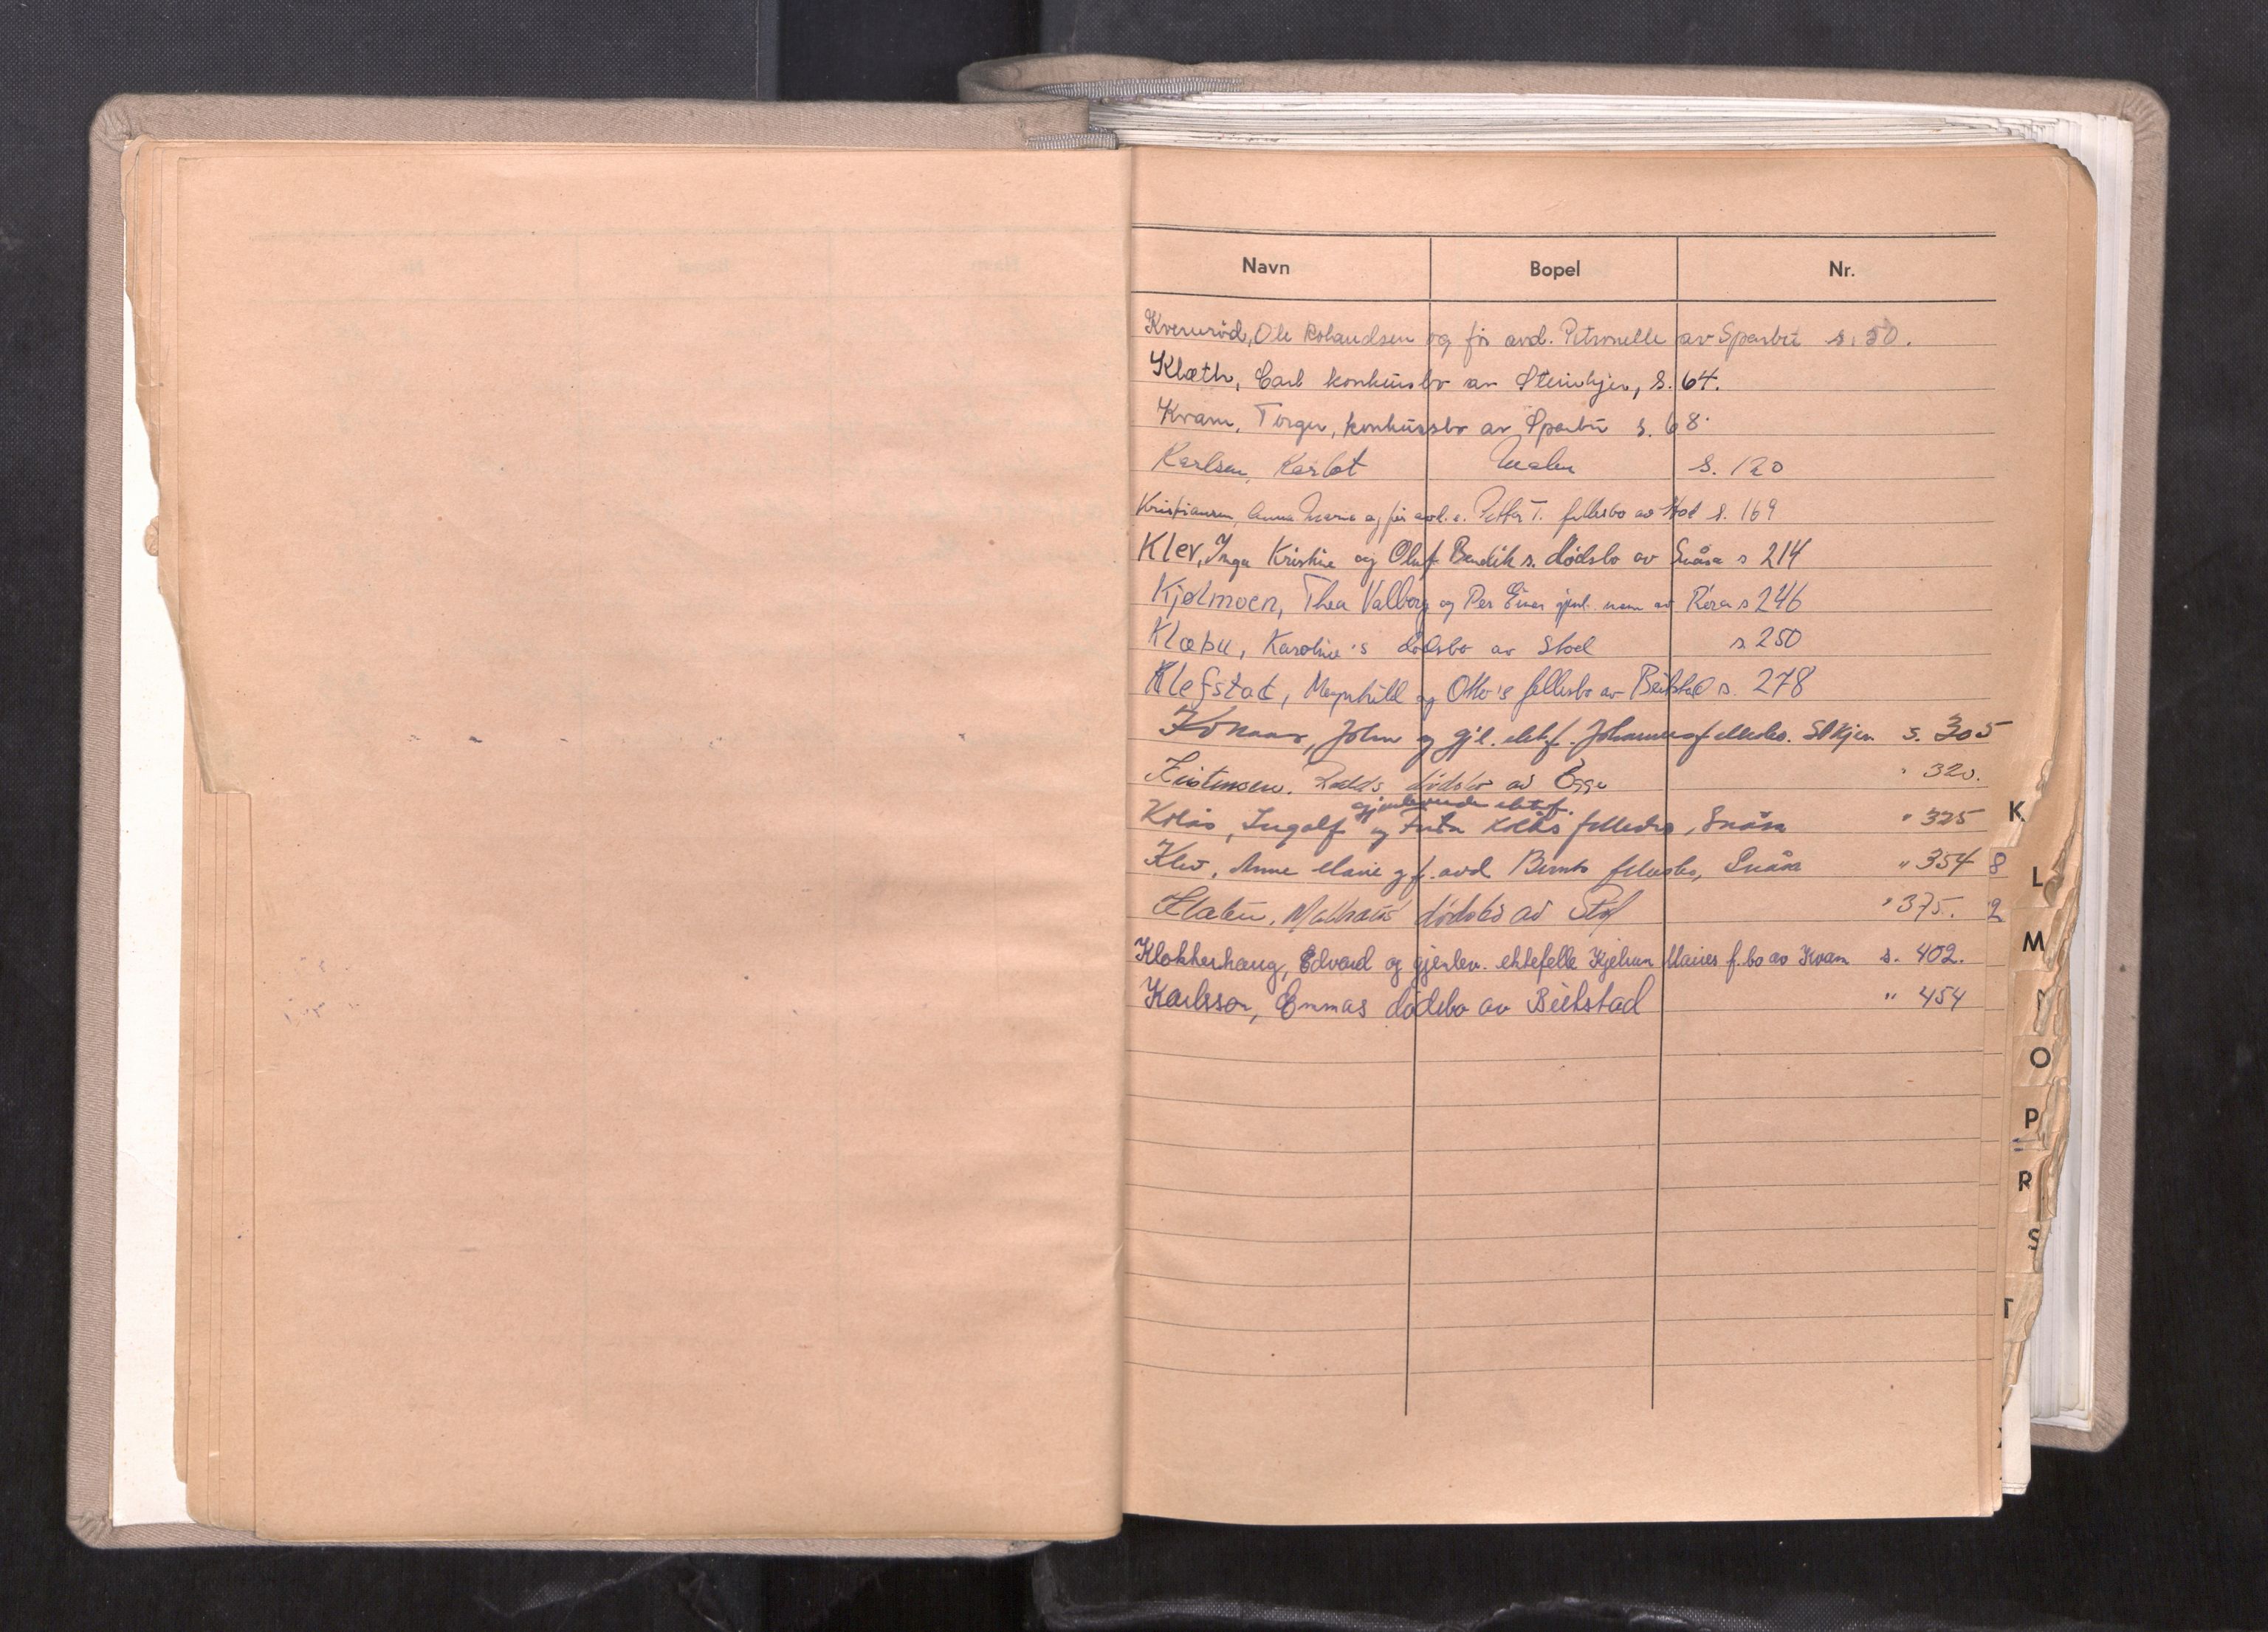 Navn Bopel Nr.
Kvernrød, Ole Rolandsen og før avd. Petronelle av Sparbu s. 50.
Klæth, Carl konkursbo av Steinkjer, s. 64.
Kvam, Torger, konkursbo av Sparbu s. 68.
Karlsen, Karlot Malm s. 120
Kristiansen, Anna Maria og før avd. e. Petter T. fellesbo av Stod s. 169
Klev, Inga Kristine og Oluf Bendik s. dødsbo av Snåsa s 214
Kjølmoen, Thea Valborg og Per Einar gjenl. av Røra s 246
Klæbu, Karoline's dødsbo av Stod s. 250
Klefstad, Magnhild og Otto's fellesbo av Beitstad s. 278
John og gjl. ektef. Johannes fellesbo. Stkjer s. 305
Kristensen. dødsbo av Egge " 320.
gjenlevende ektef.
Kolås, Ingolf og Kolås fellesbo, Snåsa " 325
Klev, Anne Marie og f. avd Bernts fellesbo, Snåsa " 354 8
dødsbo av Stod " 375. 2
Klokkerhaug, Edvard og gjenlev. ektefelle Kjelrun Maries f.bo av Kvam s. 402.
Karlsson, Emmas dødsbo av Beitstad " 454
K
L
M
O
P
R
S
T